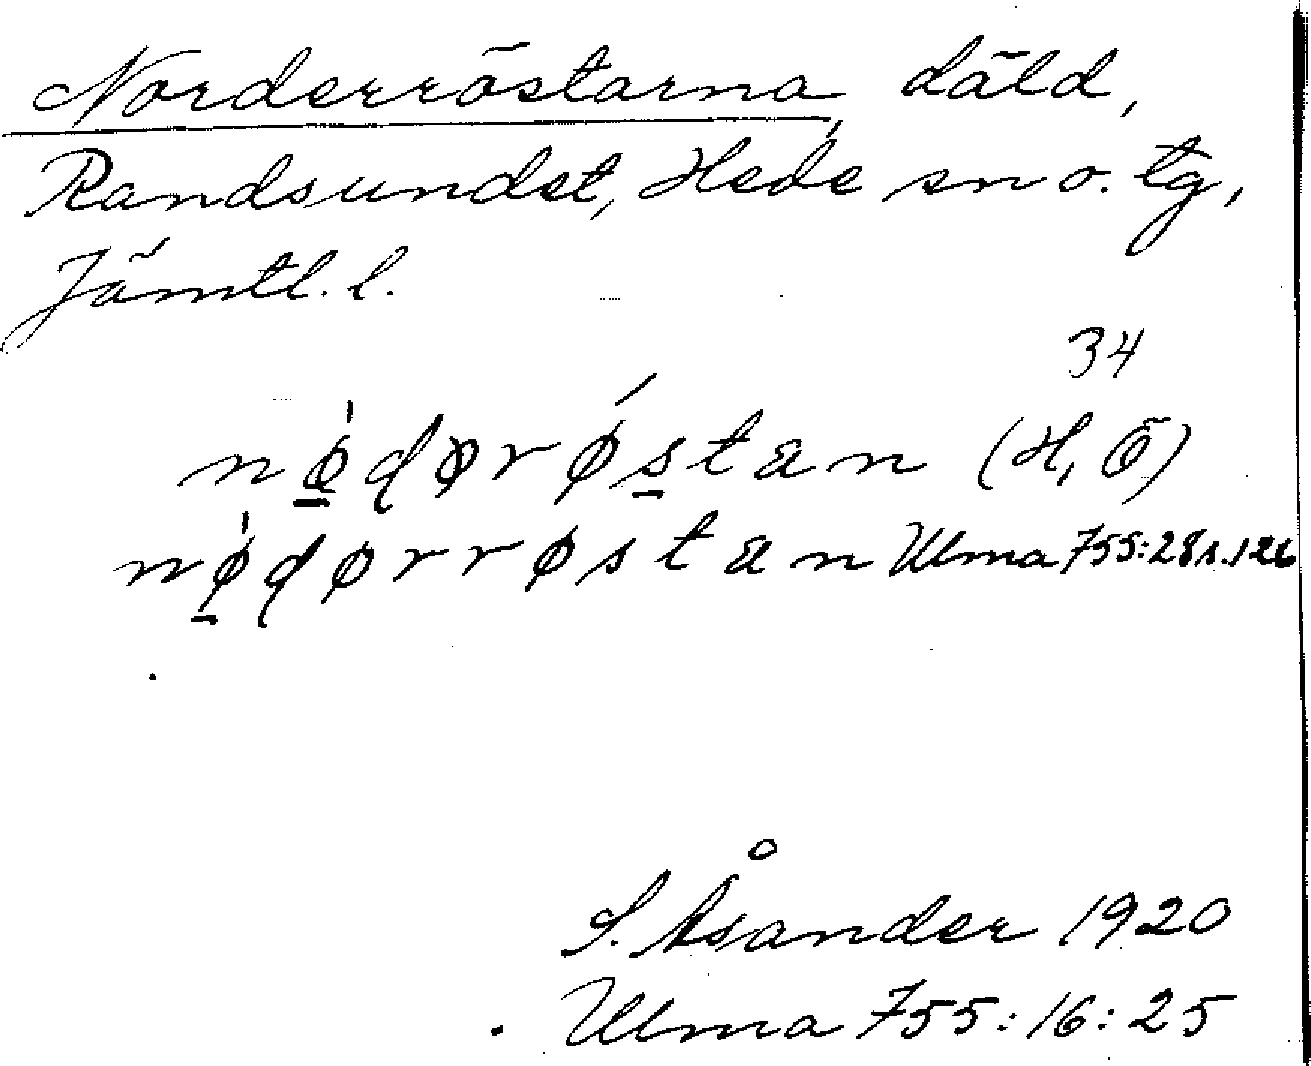 Norderröstarna, däld,
Randsundet, Hede sn o. tg,
Jämtl. l.
34
nǿ̠dørǿs̠tan (H, Ö)
nǿ̠dørrøstan Ulma 755:28 s. 126
S. Åsander 1920
Ulma 755:16:25